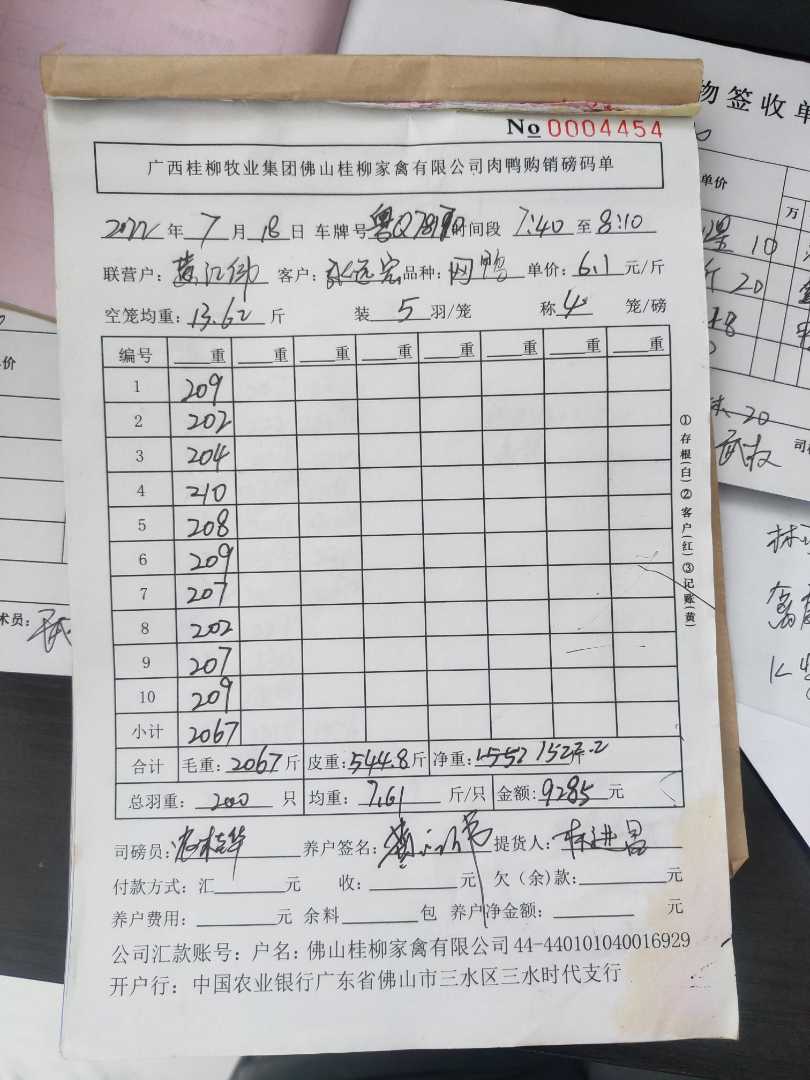 No 0004454
广西桂柳牧业集团佛山桂柳家禽有限公司肉鸭购销磅码单
2022年 7月 18日 车牌号 粤Q 时间段 7:40 至 8:10
联营户: 黄江伟 客户: 永远宏 品种: 网鸭 单价: 6.1 元/斤
空笼均重: 13.62 斤 装 5 羽/笼 称 4 笼/磅
编号 重 重 重 重 重 重 重
1 209
2 202
3 204
4 210
5 208
6 209
7 207
8 202
9 207
10 209
小计 2067
合计 毛重: 2067 斤 皮重: 544.8 斤 净重: 1522.2
总羽重: 200 只 均重: 7.61 斤/只 金额: 9285 元
司磅员: 养户签名: 提货人: 林进昌
付款方式: 汇 元 收: 元 欠(余)款: 元
养户费用: 元 余料 包 养户净金额: 元
公司汇款账号: 户名: 佛山桂柳家禽有限公司 44-440101040016929
开户行: 中国农业银行广东省佛山市三水区三水时代支行
①存根(白)②客户(红)③记账(黄)
物签收单
单价
万
10
20
+8
20
司
价
术员: